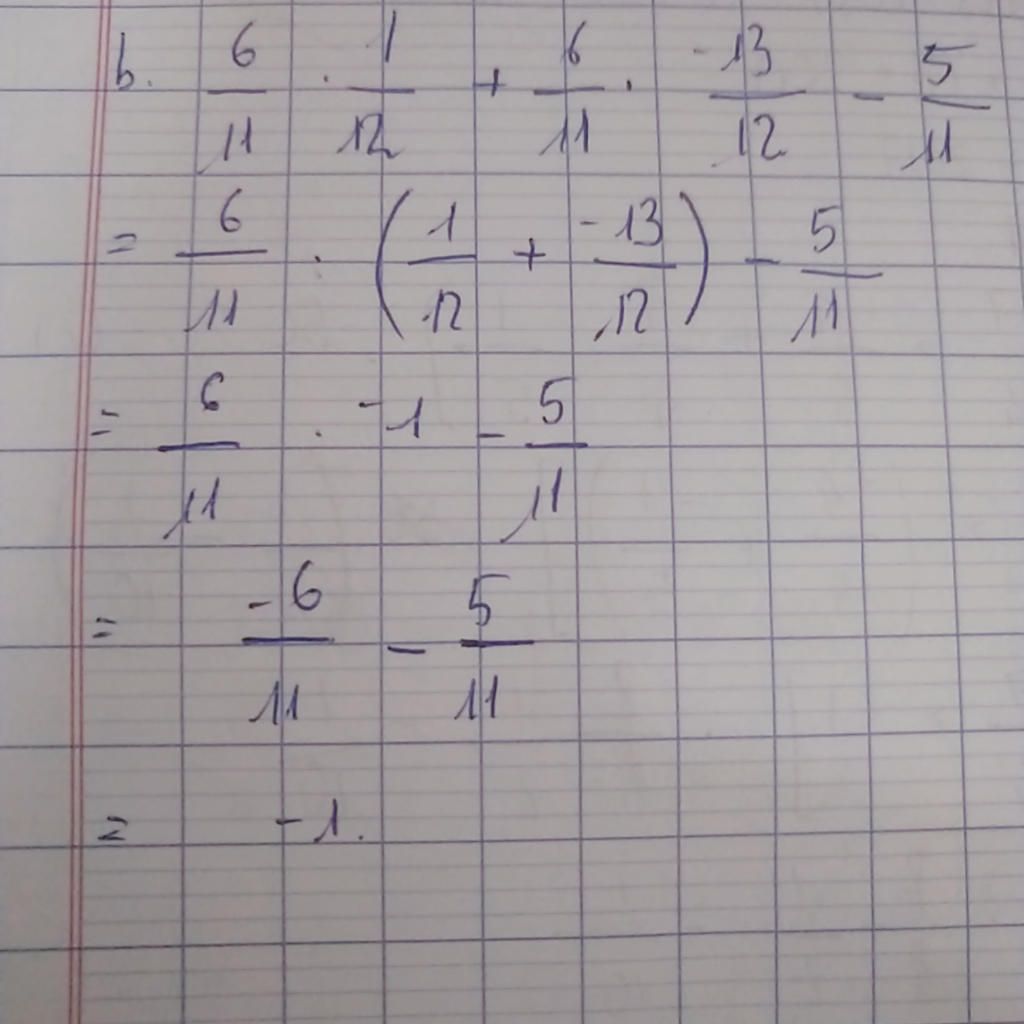 b. 6/11 . 1/12 + 6/11 . -13/12 - 5/11
= 6/11 . (1/12 + -13/12) - 5/11
= 6/11 . -1 - 5/11
= -6/11 - 5/11
= -1.